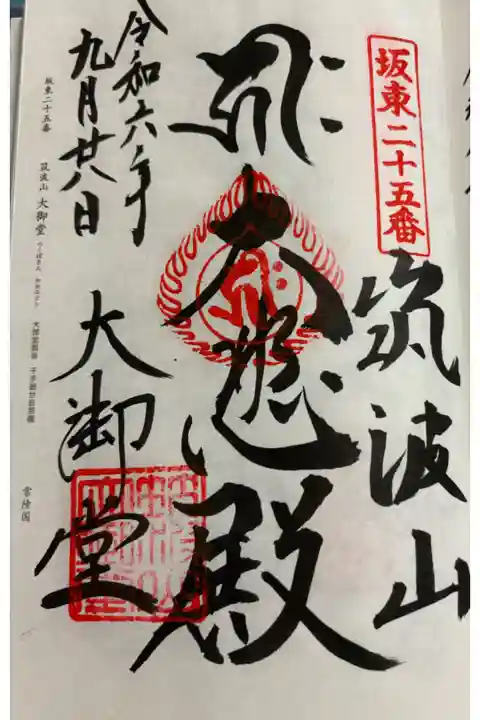 坂東二十五番
筑波山
大悲殿
大御堂
令和六年
九月廿八日
坂東二十五番 筑波山 大御堂
常陸国